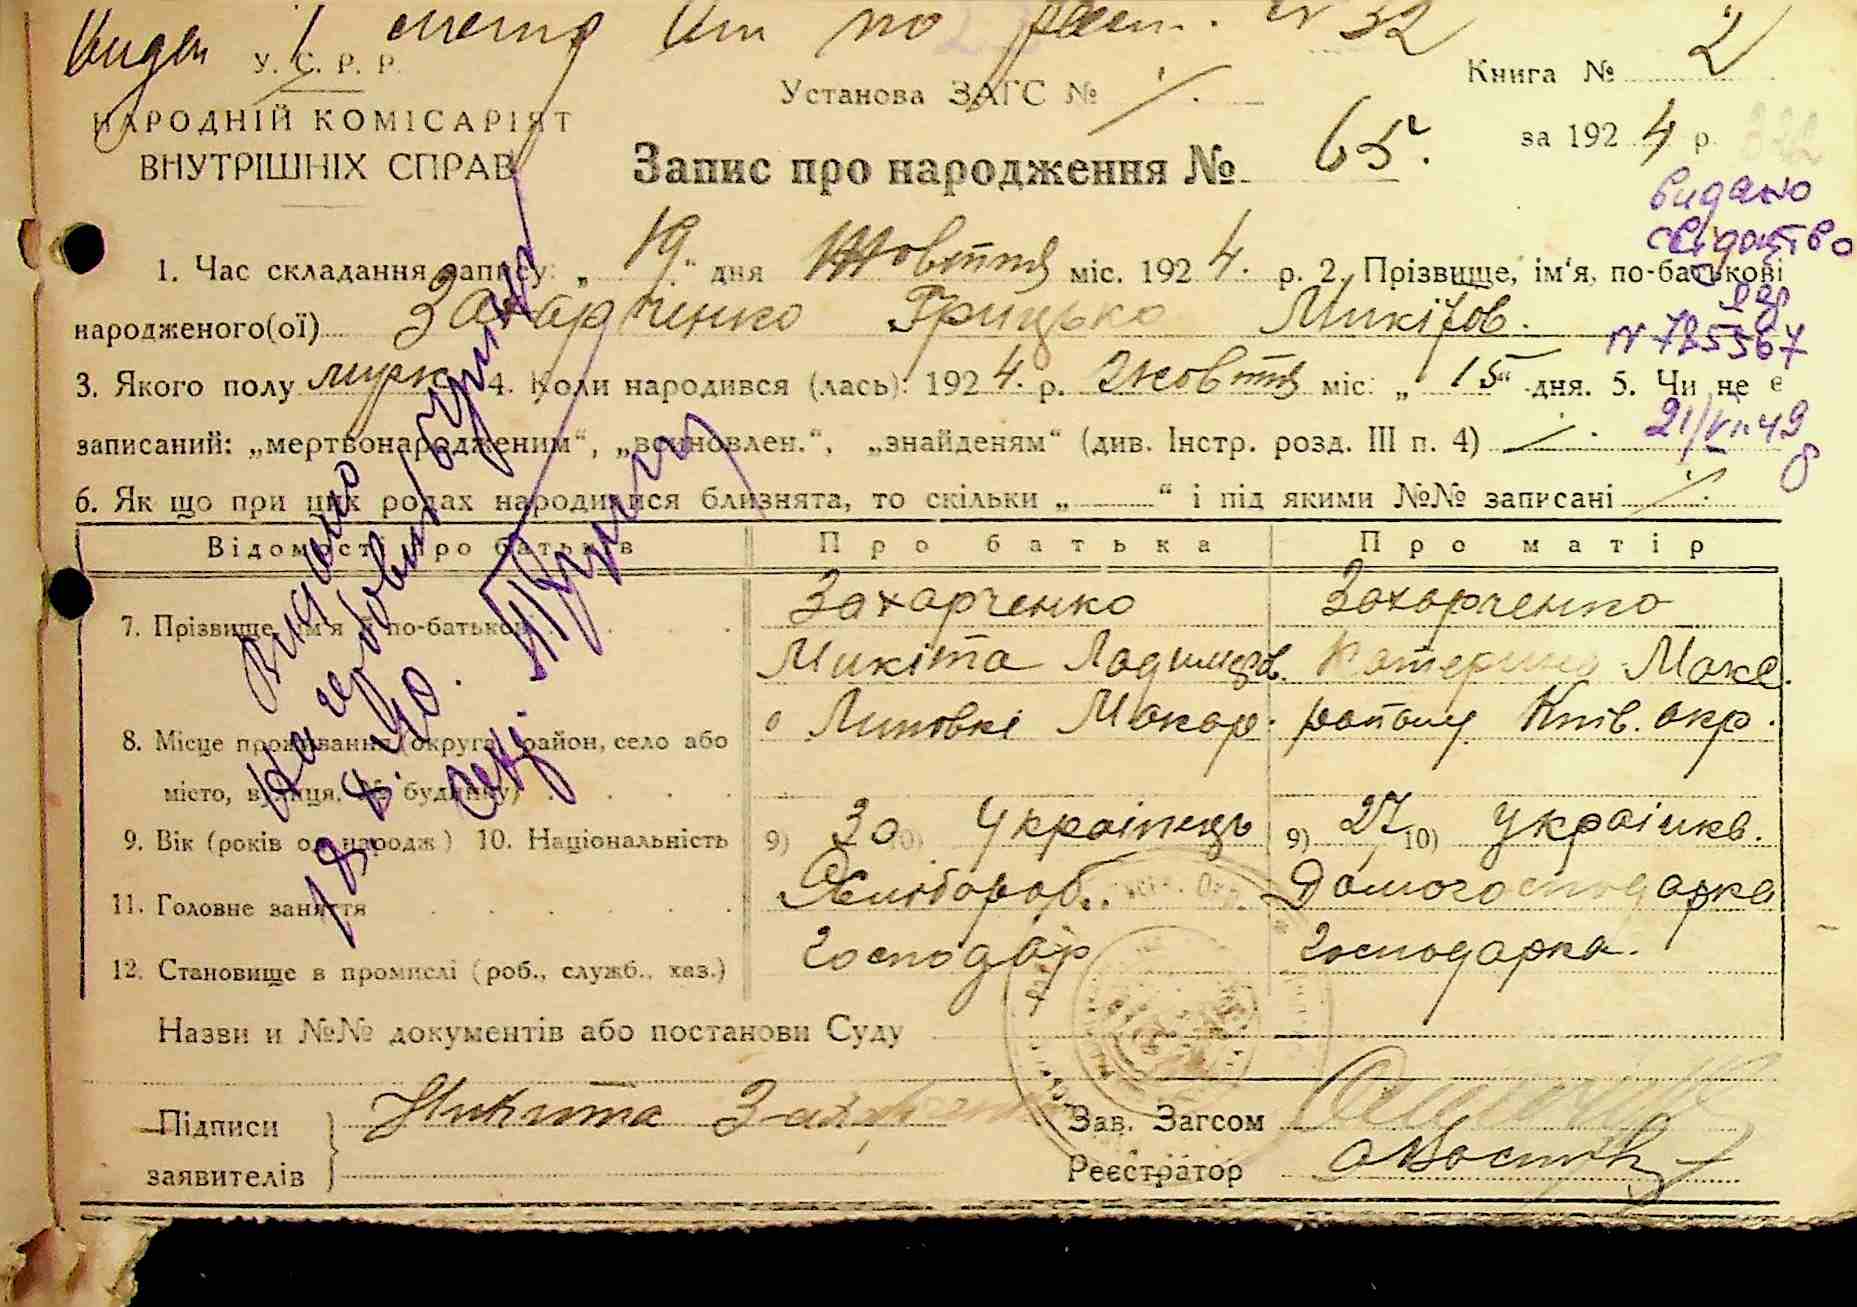 У. С. Р. Р.
НАРОДНІЙ КОМІСАРІЯТ
ВНУТРІШНІХ СПРАВ
Установа ЗАГС №
Книга № 2
за 1924 р.
Запис про народження № 65.
1. Час складання запису: „19“ дня Жовтня міс. 1924. р. 2. Прізвище, ім'я, по-батькові
народженого(ої) Захарченко Грицько Микітов.
3. Якого полу муж. 4. Коли народився (лась): 1924. р. Жовтня міс. „15“ дня. 5. Чи не є
записаний: „мертвонародженим“, „всиновлен.“, „знайденям“ (див. Інстр. розд. III п. 4)
6. Як що при цих родах народилися близнята, то скільки „ “ і під якими №№ записані
видано
свідоцтво
№ 785567
Видано
Відомості про батьків Про батька Про матір
7. Прізвище, ім'я й по-батькові Захарченко Захарченко
Микіта Ладимиров. Катерина Макс.
8. Місце проживання (округа, район, село або Липовкі Макар. району Київ. окр.
місто, вулиця, № будинку)
9. Вік (років од народж) 10. Національність 9) 30 10) Українець 9) 27 10) Українкв.
11. Головне заняття Хлібороб. Домогосподарка
12. Становище в промислі (роб., служб., хаз.) Господар Господарка.
Назви и №№ документів або постанови Суду
Підписи
заявителів
Никита Захарченко
Зав. Загсом
Реєстратор